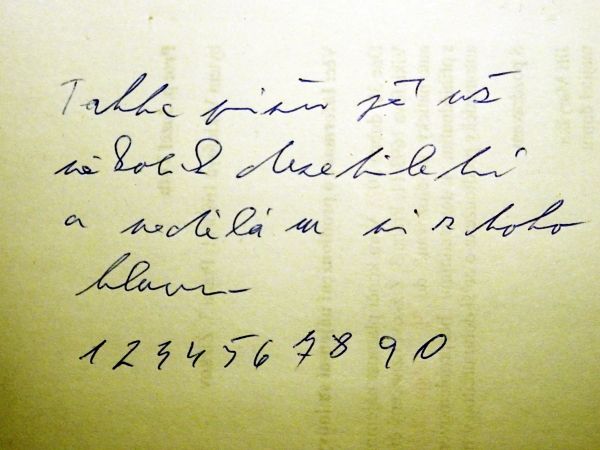 Takhle píšu já už
několik desetiletí
a nedělám si z toho
hlavu
1234567890